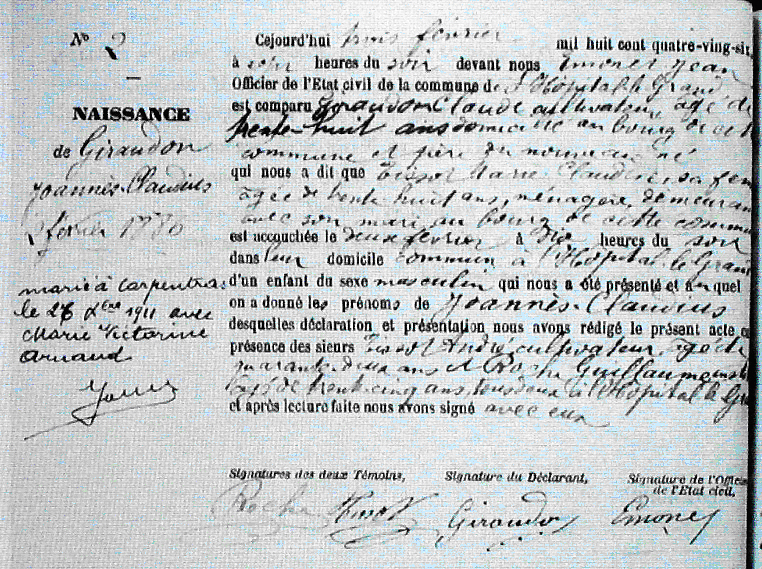 Nº 2
NAISSANCE
de Giraudon
Joannès-Claudius
2 février 1886
marié à Carpentras
le 28 Xbre 1911 avec
Marie Victorine
Arnaud
Cejourd'hui trois février mil huit cent quatre-ving-six
à heures du soir devant nous Emonet Jean
Officier de l'Etat civil de la commune de L'Hôpital-le-Grand
est comparu Giraudon Claude cultivateur, agé de
trente-huit ans domicilié au bourg de cette
commune et père du nouveau né
qui nous a dit que Tissot Marie Claudine, sa fem
agée de trente huit ans, ménagère, demeurant
avec son mari au bourg de cette commu
est accouchée le deux février à dix heures du soir
dans leur domicile commun à l'Hôpital-le-Grand
d'un enfant du sexe masculin qui nous a été présenté et auquel
on a donné les prénoms de Joannès-Claudius
desquelles déclaration et présentation nous avons rédigé le présent acte en
présence des sieurs Tissot André, cultivateur, agé de
quarante-deux ans et Roche Guillaume
agé de trente-cinq ans, tous deux à l'Hôpital-le-Gra
et après lecture faite nous avons signé avec eux
Signatures des deux Témoins, Signature du Déclarant, Signature de l'Officier
de l'Etat civil,
Roche Tissot Giraudon Emonet